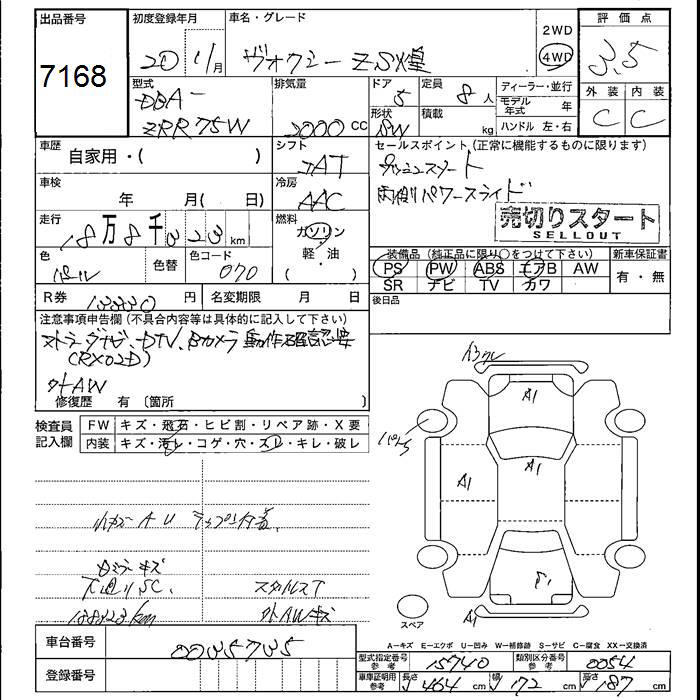 出品番号
7168
初度登録年月
20 11月
車名・グレード
ヴォクシー ZS煌
2WD
4WD
評価点
3.5
外装 内装
C C
型式
DBA-
ZRR75W
排気量
2000 CC
ドア
5
形状
定員
8人
積載
kg
ディーラー・並行
モデル年式 年
ハンドル 左・右
車歴
自家用・( )
シフト
車検
年 月( 日)
冷房
AAC
走行
18万8千323km
燃料
ガソリン
軽・油
( )
色
パール
色替
色コード
070
R券
円
名変期限 月 日
セールスポイント(正常に機能するものに限ります)
プッシュスタート
両側パワースライド
売切りスタート
SELLOUT
装備品(純正品に限り○をつけて下さい)
PS PW ABS エアB AW
SR ナビ TV カワ
新車保証書
有・無
後日品
注意事項申告欄(不具合内容等は具体的に記入して下さい)
ストラーダナビ、DTV、Bカメラ動作確認要
(RX02D)
外AW
修復歴 有〔箇所 〕
検査員記入欄
FW キズ・飛石・ヒビ割・リペア跡・X要
内装 キズ・汚レ・コゲ・穴・スレ・キレ・破レ
小キズ A U
キズ
下廻りSC.
スタッドレスT
外AWキズ
A1
A1
A1
A1
スペア
A1
A-キズ E-エクボ U-凹み W-補修跡 S-サビ C-腐食 XX-交換済
車台番号
0035735
登録番号
型式指定番号
参考
15740
類別区分番号
参考
0054
車庫証明用
参考
長さ 464 cm
幅 172 cm
高さ 187 cm